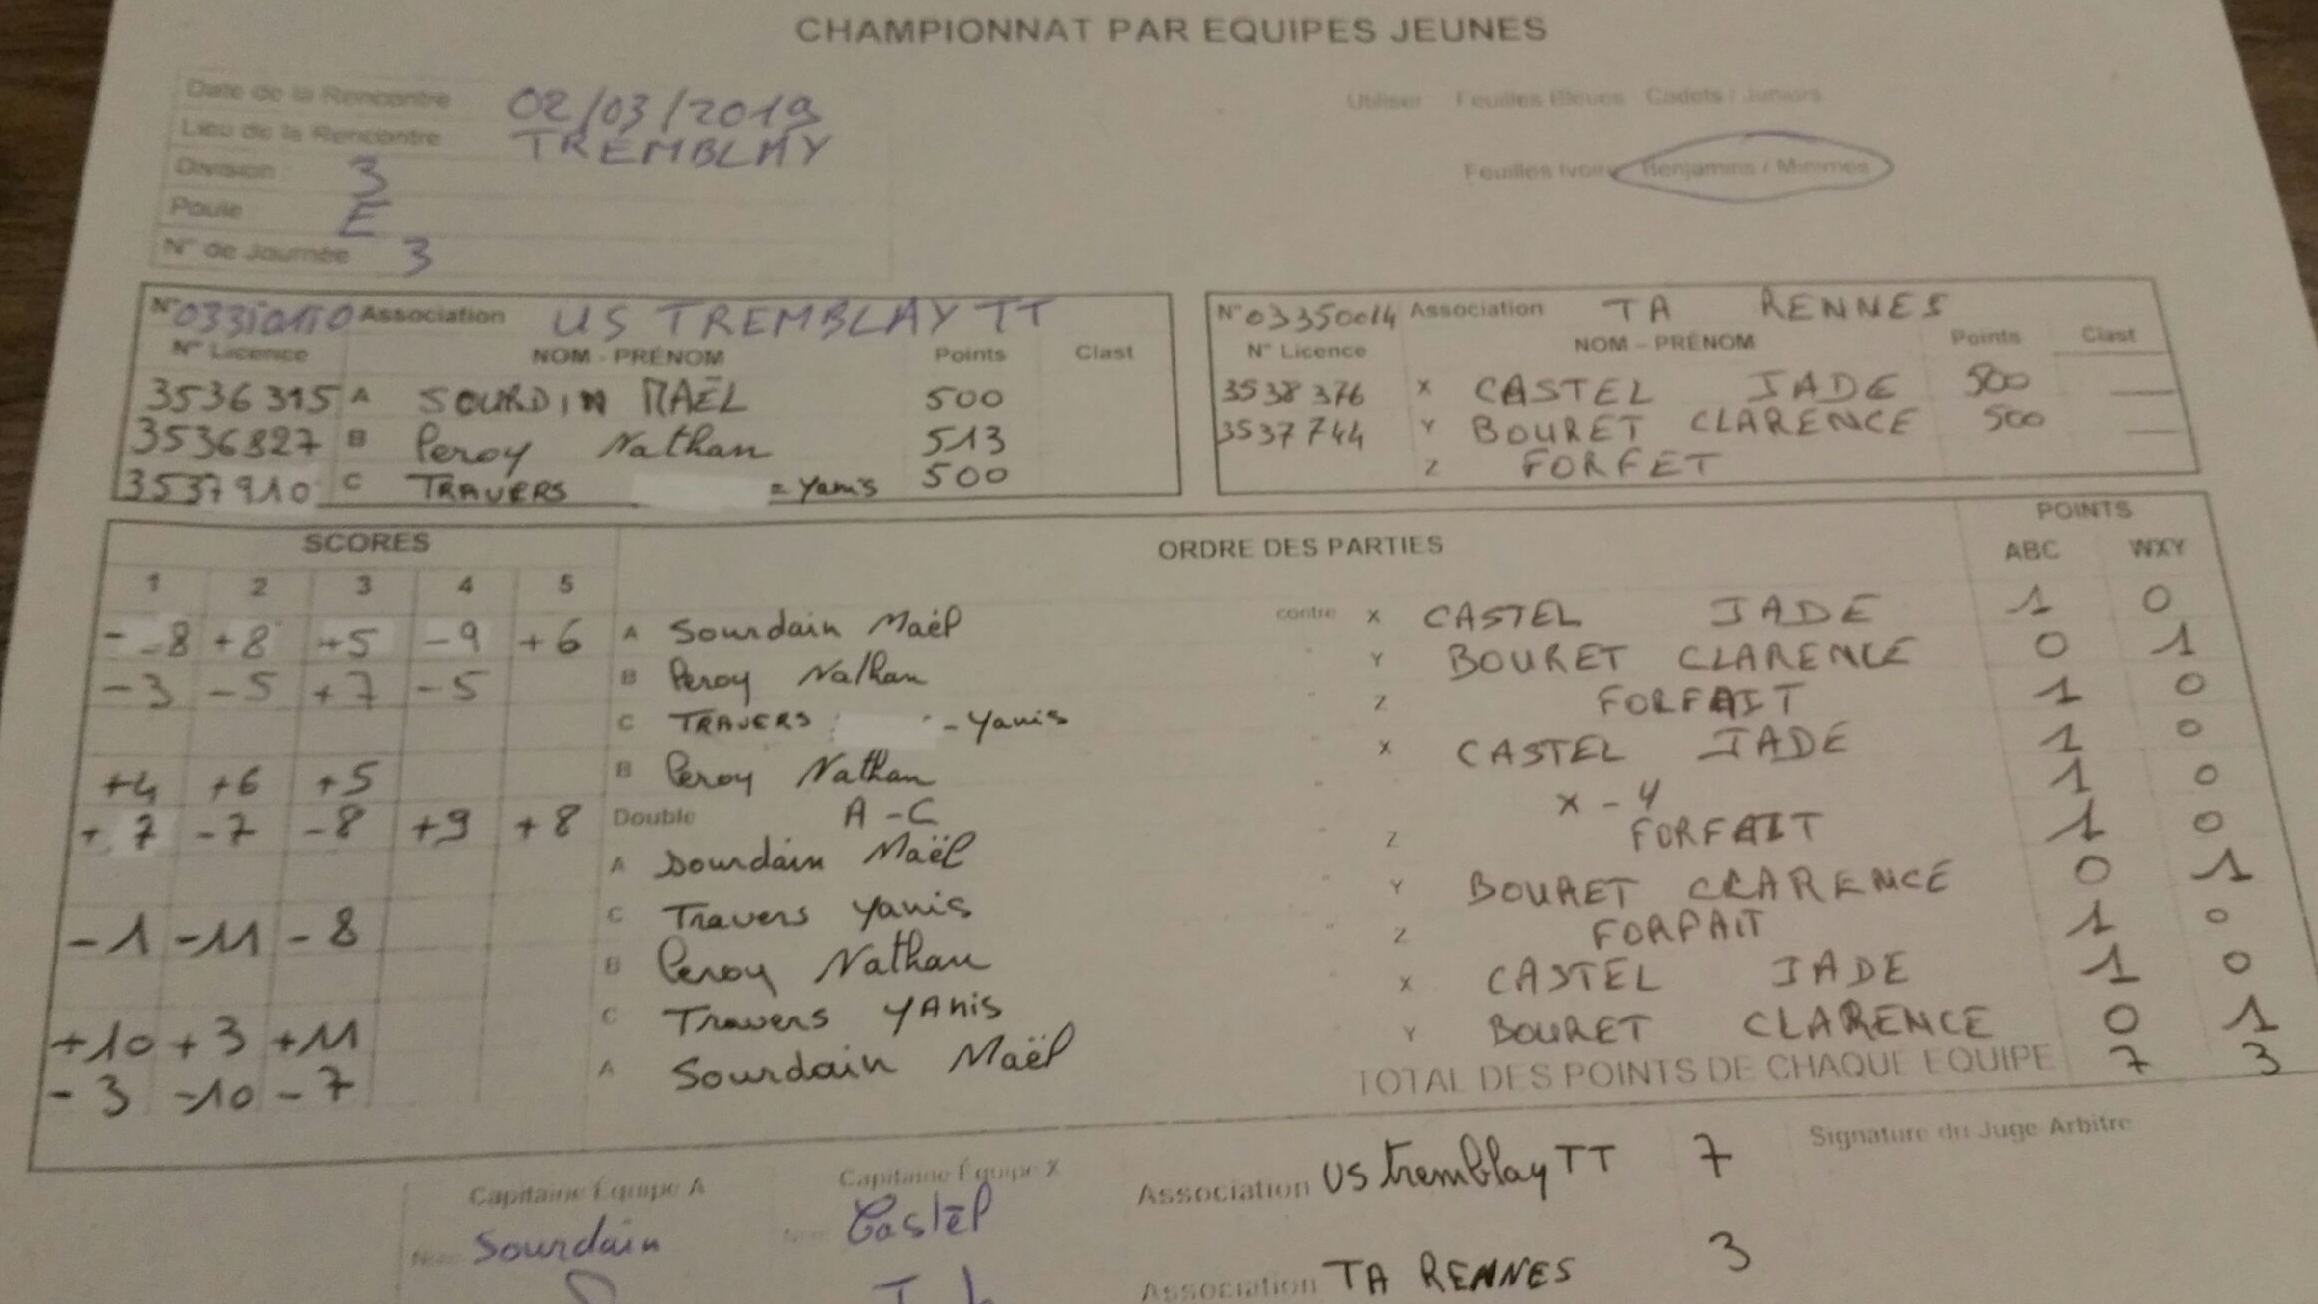 CHAMPIONNAT PAR EQUIPES JEUNES
Date de la Rencontre 02/03/2019
Lieu de la Rencontre TREMBLAY
Division : 3
Poule E
N° de Journée 3
Utiliser Feuilles Bleues Cadets / Juniors
Feuilles Ivoire Benjamins / Minimes
N° Association US TREMBLAY TT
N° Licence NOM - PRÉNOM Points Clast
3536315 A SOURDIN MAËL 500
3536827 B Peroy Nathan 513
3537910 C TRAVERS = Yanis 500
N° 03350014 Association TA RENNES
N° Licence NOM - PRÉNOM Points Clast
3538376 X CASTEL JADE 500
3537744 Y BOURET CLARENCE 500
Z FORFET
SCORES ORDRE DES PARTIES POINTS
1 2 3 4 5 ABC WXY
- -8 +8 +5 -9 +6 A Sourdain Maël contre X CASTEL JADE 1 0
-3 -5 +7 -5 B Peroy Nathan Y BOURET CLARENCE 0 1
C TRAVERS - Yanis Z FORFAIT 1 0
+4 +6 +5 B Peroy Nathan X CASTEL JADE 1 0
+ 7 -7 -8 +9 +8 Double A - C X - Y 1 0
A Sourdain Maël Z FORFAIT 1 0
-1 -11 -8 C Travers Yanis Y BOURET CLARENCE 0 1
B Peroy Nathan Z FORFAIT 1 0
+10 +3 +11 C Travers YAnis X CASTEL JADE 1 0
-3 -10 -7 A Sourdain Maël Y BOURET CLARENCE 0 1
TOTAL DES POINTS DE CHAQUE EQUIPE 7 3
Capitaine Équipe A Capitaine Équipe X Association US Tremblay TT 7 Signature du Juge Arbitre
Nom Sourdain Nom Castel
Association TA RENNES 3